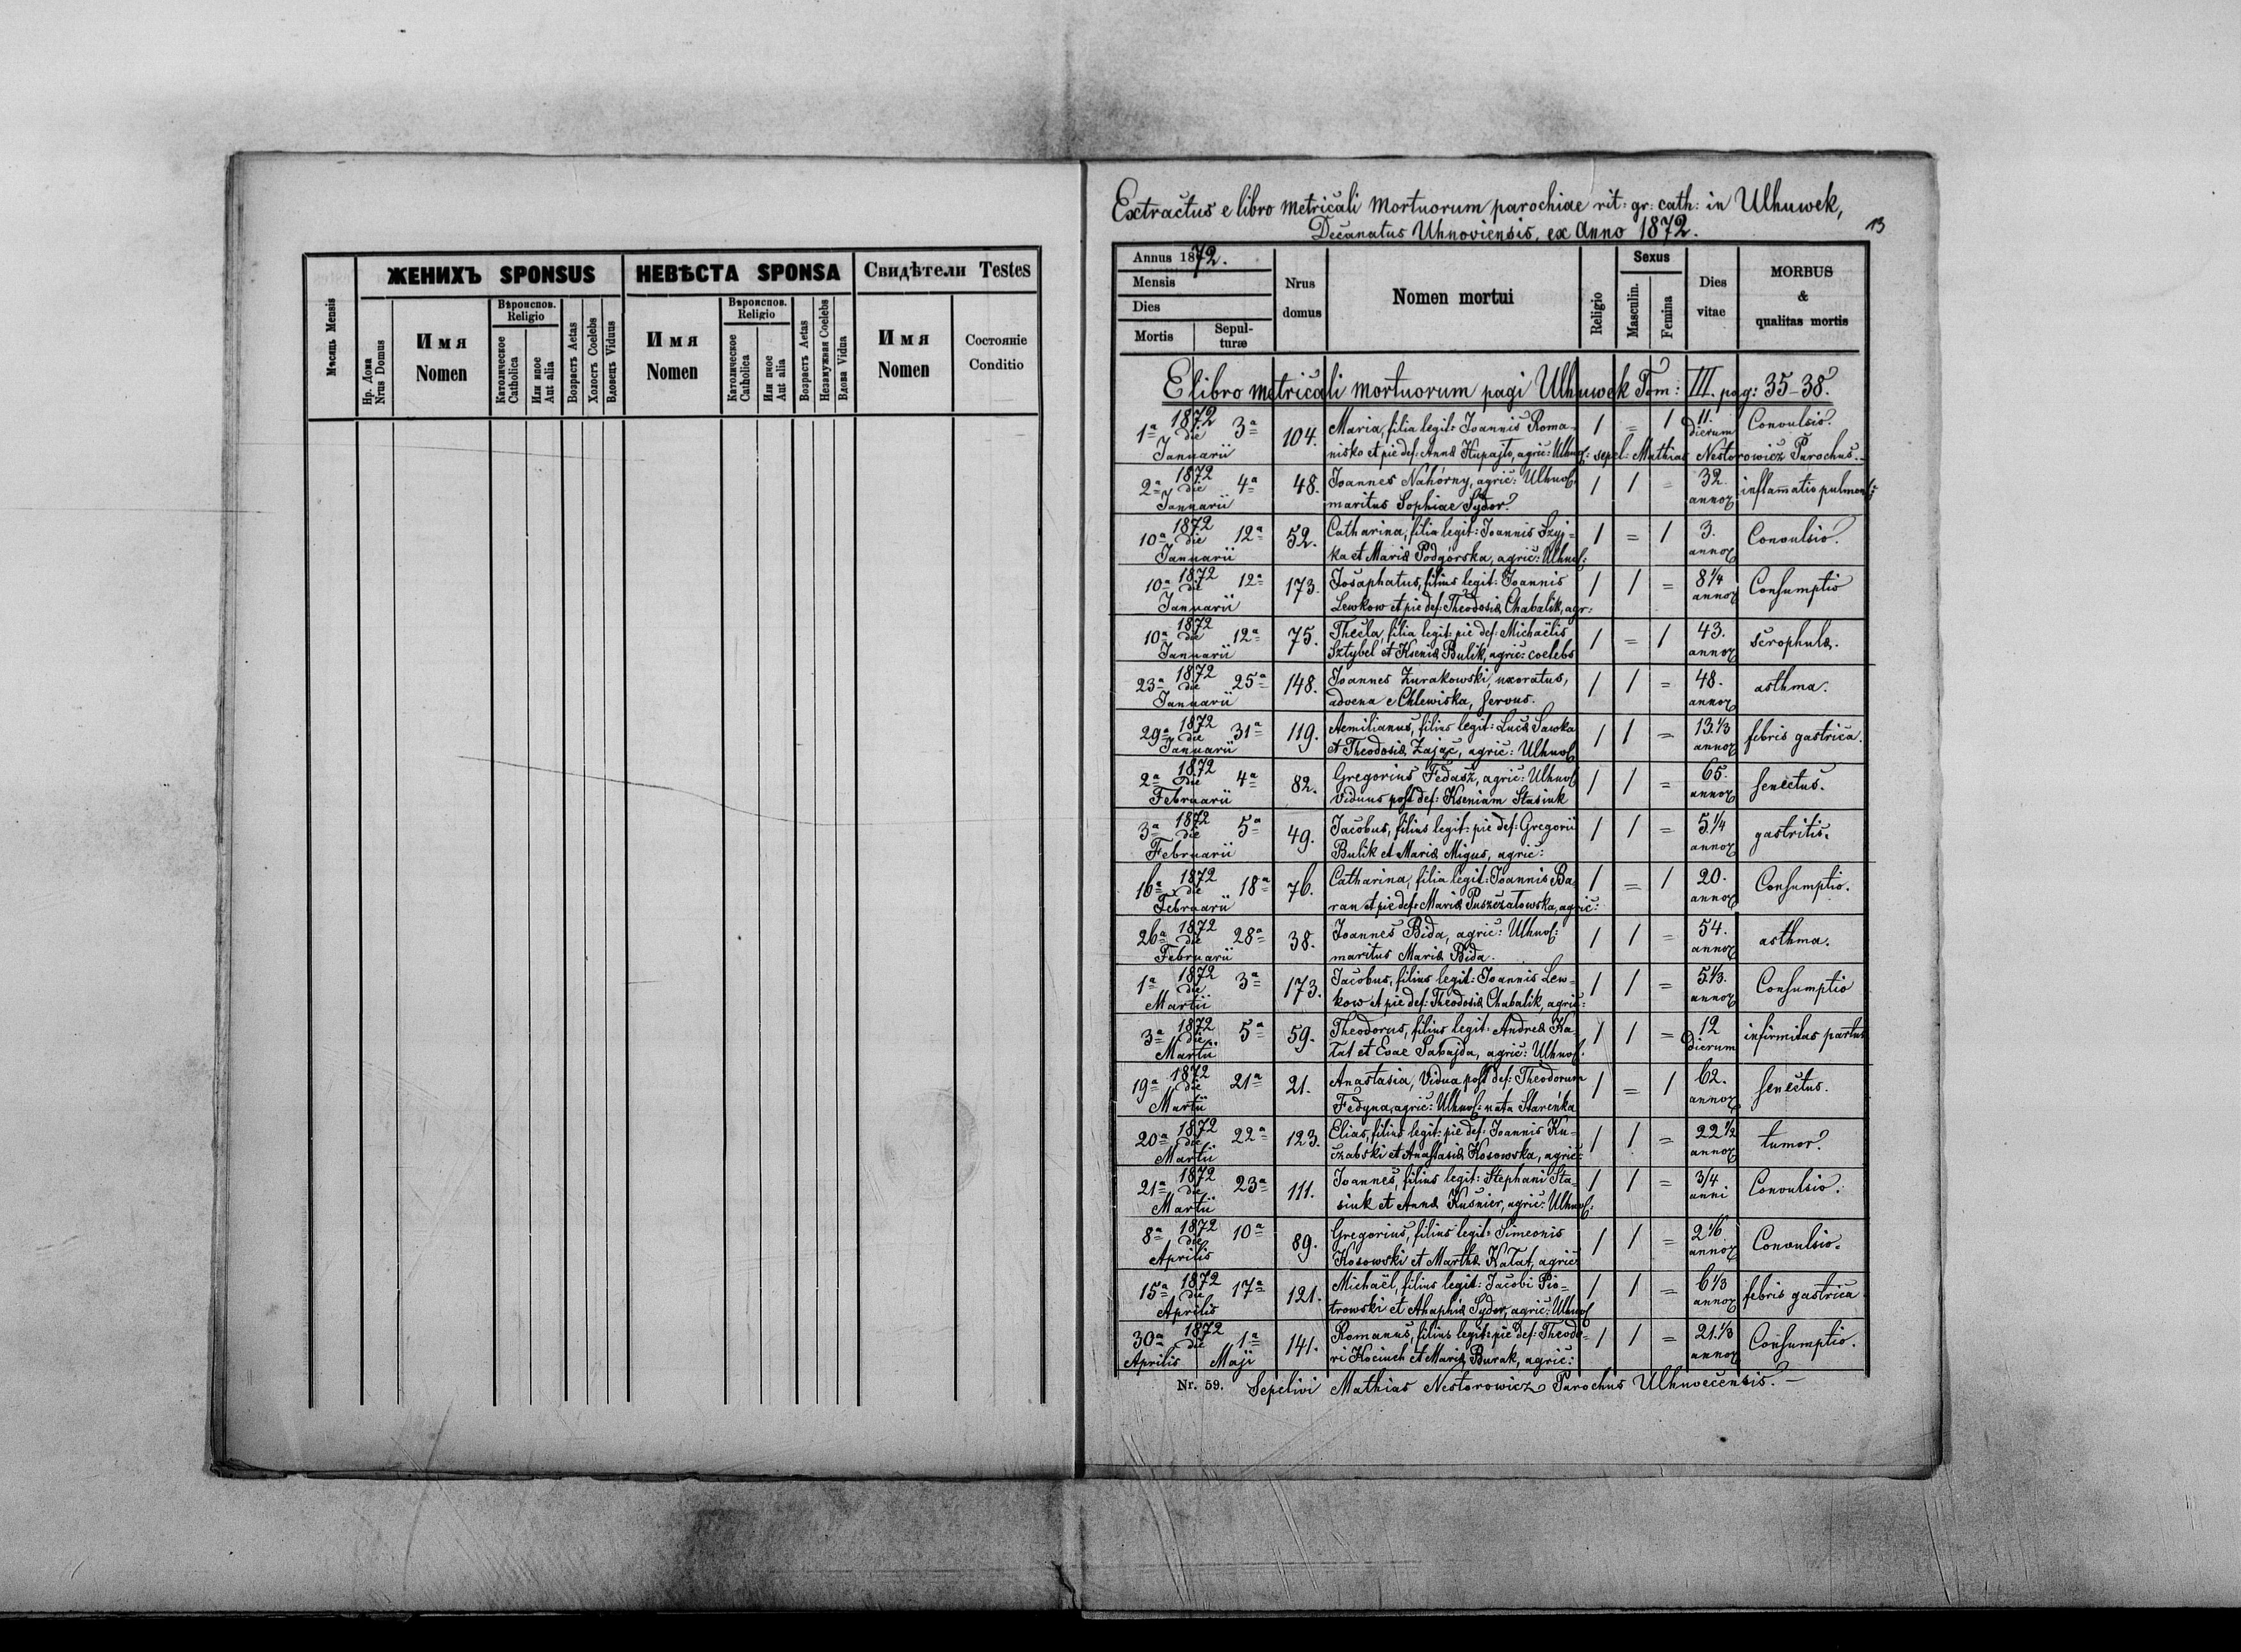 ЖЕНИХЪ SPONSUS
НЕВѢСТА SPONSA
Свидѣтели Testes
Мѣсяць Mensis
Нр. Дома
Nrus Domus
Имя
Nomen
Вѣроиспов.
Religio
Католическое
Catholica
Или иное
Aut alia
Возрастъ Aetas
Холостъ Coelebs
Вдовецъ Viduus
Имя
Nomen
Вѣроиспов.
Religio
Католическое
Catholica
Или иное
Aut alia
Возрастъ Aetas
Незамужная Coelebs
Вдова Vidua
Имя
Nomen
Состояніе
Conditio
Extractus e libro metricali mortuorum parochiae rit: gr: cath: in Ulhuwek,
Decanatus Uhnoviensis, ex Anno 1872.
13
Annus 1872.
Mensis
Dies
Mortis
Sepul-
turæ
Nrus
domus
Nomen mortui
Religio
Sexus
Masculin.
Femina
Dies
vitae
MORBUS
&
qualitas mortis
E libro metricali mortuorum pagi Ulhuwek Tom: III. pag: 35-38.
1a 1872 die 3a Januarii 104. Maria, filia legit: Joannis Roma- 1 = 1 11. dierum Convulsio.
nisko et pie def: Annæ Hupajło, agric: Ulhuv: sepel: Mathias Nestorowicz Parochus.
2a 1872 die 4a Januarii 48. Joannes Nahórny, agric: Ulhuv: 1 1 = 32. annor inflamatio pulmon:
maritus Sophiae Sydor.
10a 1872 die 12a Januarii 52. Catharina, filia legit: Joannis Szyj- 1 = 1 3. annor Convulsio.
ka et Mariæ Podgórska, agric: Ulhuv:
10a 1872 die 12a Januarii 173. Josaphatus, filius legit: Joannis 1 1 = 8 1/4 annor Consumptio
Lewkow et pie def: Theodosiæ Chabalik, agr:
10a 1872 die 12a Januarii 75. Thecla, filia legit: pie def: Michaëlis 1 = 1 43. annor scrophulæ.
Sztybel et Kseniæ Bulik, agric: coelebs
23a 1872 die 25a Januarii 148. Joannes Zurakowski, uxoratus, 1 1 = 48. annor asthma.
advena e Chlewiska, servus.
29a 1872 die 31a Januarii 119. Aemilianus, filius legit: Lucæ Sawka 1 1 = 13 1/3 annor febris gastrica.
et Theodosiæ Zając, agric: Ulhuv:
2a 1872 die 4a Februarii 82. Gregorius Fedasz, agric: Ulhuv: 1 1 = 65. annor senectus.
viduus post def: Kseniam Stasiuk
3a 1872 die 5a Februarii 49. Jacobus, filius legit: pie def: Gregorii 1 1 = 5 1/4 annor gastritis.
Bulik et Mariæ Migus, agric:
16a 1872 die 18a Februarii 76. Catharina, filia legit: Joannis Ba- 1 = 1 20. annor Consumptio.
ran et pie def: Mariæ Puszczałowska, agric:
26a 1872 die 28a Februarii 38. Joannes Bida, agric: Ulhuv: 1 1 = 54. annor asthma.
maritus Mariæ Bida.
1a 1872 die 3a Martii 173. Jacobus, filius legit: Joannis Lew- 1 1 = 5 1/3. annor Consumptio
kow et pie def: Theodosiæ Chabalik, agric:
3a 1872 die 5a Martii 59. Theodorus, filius legit: Andreæ Ka- 1 1 = 12 dierum infirmitas partus
łat et Evae Sabajda, agric: Ulhuv:
19a 1872 die 21a Martii 21. Anastasia, vidua post def: Theodorum 1 = 1 62. annor senectus.
Fedyna, agric: Ulhuv: nata Stareńka
20a 1872 die 22a Martii 123. Elias, filius legit: pie def: Joannis Ku- 1 1 = 22 1/2 annor tumor.
czabski et Anastasiæ Kosowska, agric:
21a 1872 die 23a Martii 111. Joannes, filius legit: Stephani Sta- 1 1 = 3/4 anni Convulsio.
siuk et Annæ Kuśnier, agric: Ulhuv:
8a 1872 die 10a Aprilis 89. Gregorius, filius legit: Simeonis 1 1 = 2 1/6 annor Convulsio.
Kosowski et Marthæ Kałat, agric:
15a 1872 die 17a Aprilis 121. Michaël, filius legit: Jacobi Pio- 1 1 = 6 1/3 annor febris gastrica
trowski et Ahaphiæ Sydor, agric: Ulhuv:
30a 1872 die 1a Aprilis Maji 141. Romanus, filius legit: pie def: Theodo- 1 1 = 21 1/3 annor Consumptio.
ri Kociuch et Mariæ Burak, agric:
Nr. 59. Sepelivi Mathias Nestorowicz Parochus Ulhuvecensis.